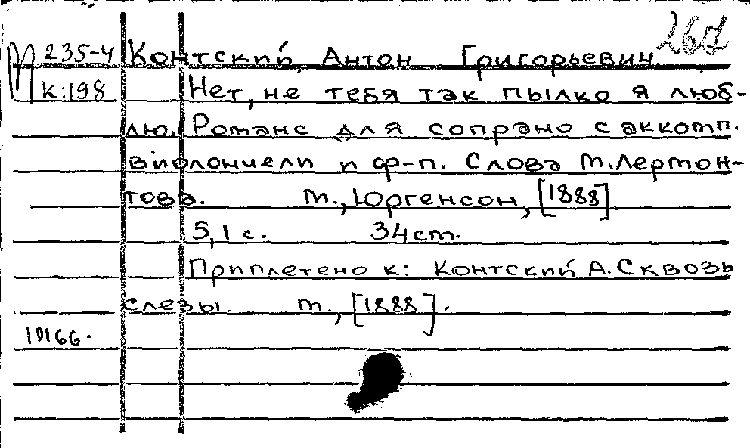 М 235-4 Контский, Антон Григорьевич
к:198 Нет, не тебя так пылко я люб-
лю. Романс для сопрано с аккомп.
виолончели и ф-п. Слова М. Лермон-
това. М., Юргенсон, [1888]
5,1 с. 34 см.
Приплетено к: Контский А. Сквозь
слезы. М., [1888].
10166.